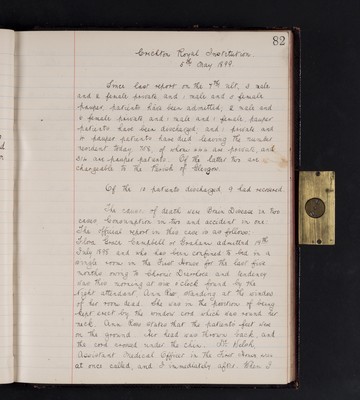 82
Crichton Royal Institution
8th May 1899.
Since last report on the 7th ult, male
and 2 female private, and 1 male and female
pauper, patients have been admitted; 2 male and
female private and 1 male and 1 female pauper
patients have been discharged; and 1 private and
pauper patients have died leaving the number
resident today, of whom are private, and
are pauper patients. Of the latter two are
chargeable to the Parish of Glasgow.
Of the 10 patients discharged 9 had recovered
The causes of death were Brain Disease in two
cases, Consumption in two and accident in one.
The official report in this case is as follows:
Campbell or Graham admitted 19th
July 1895 and who has been confined to bed in a
single room in the First House for the last five
months owing to Chronic and tendency
was this morning at one o'clock found by the
night attendant, Ann Ross standing at the window
of her room dead. She was in the position of being
kept erect by the window cord which was round her
neck. Ann Ross states that the patient's feet were
on the ground. Her head was thrown back, and
the cord crossed under the chin. Dr.
Assistant Medical Officer in the First House was
at once called, and I immediately after. When I